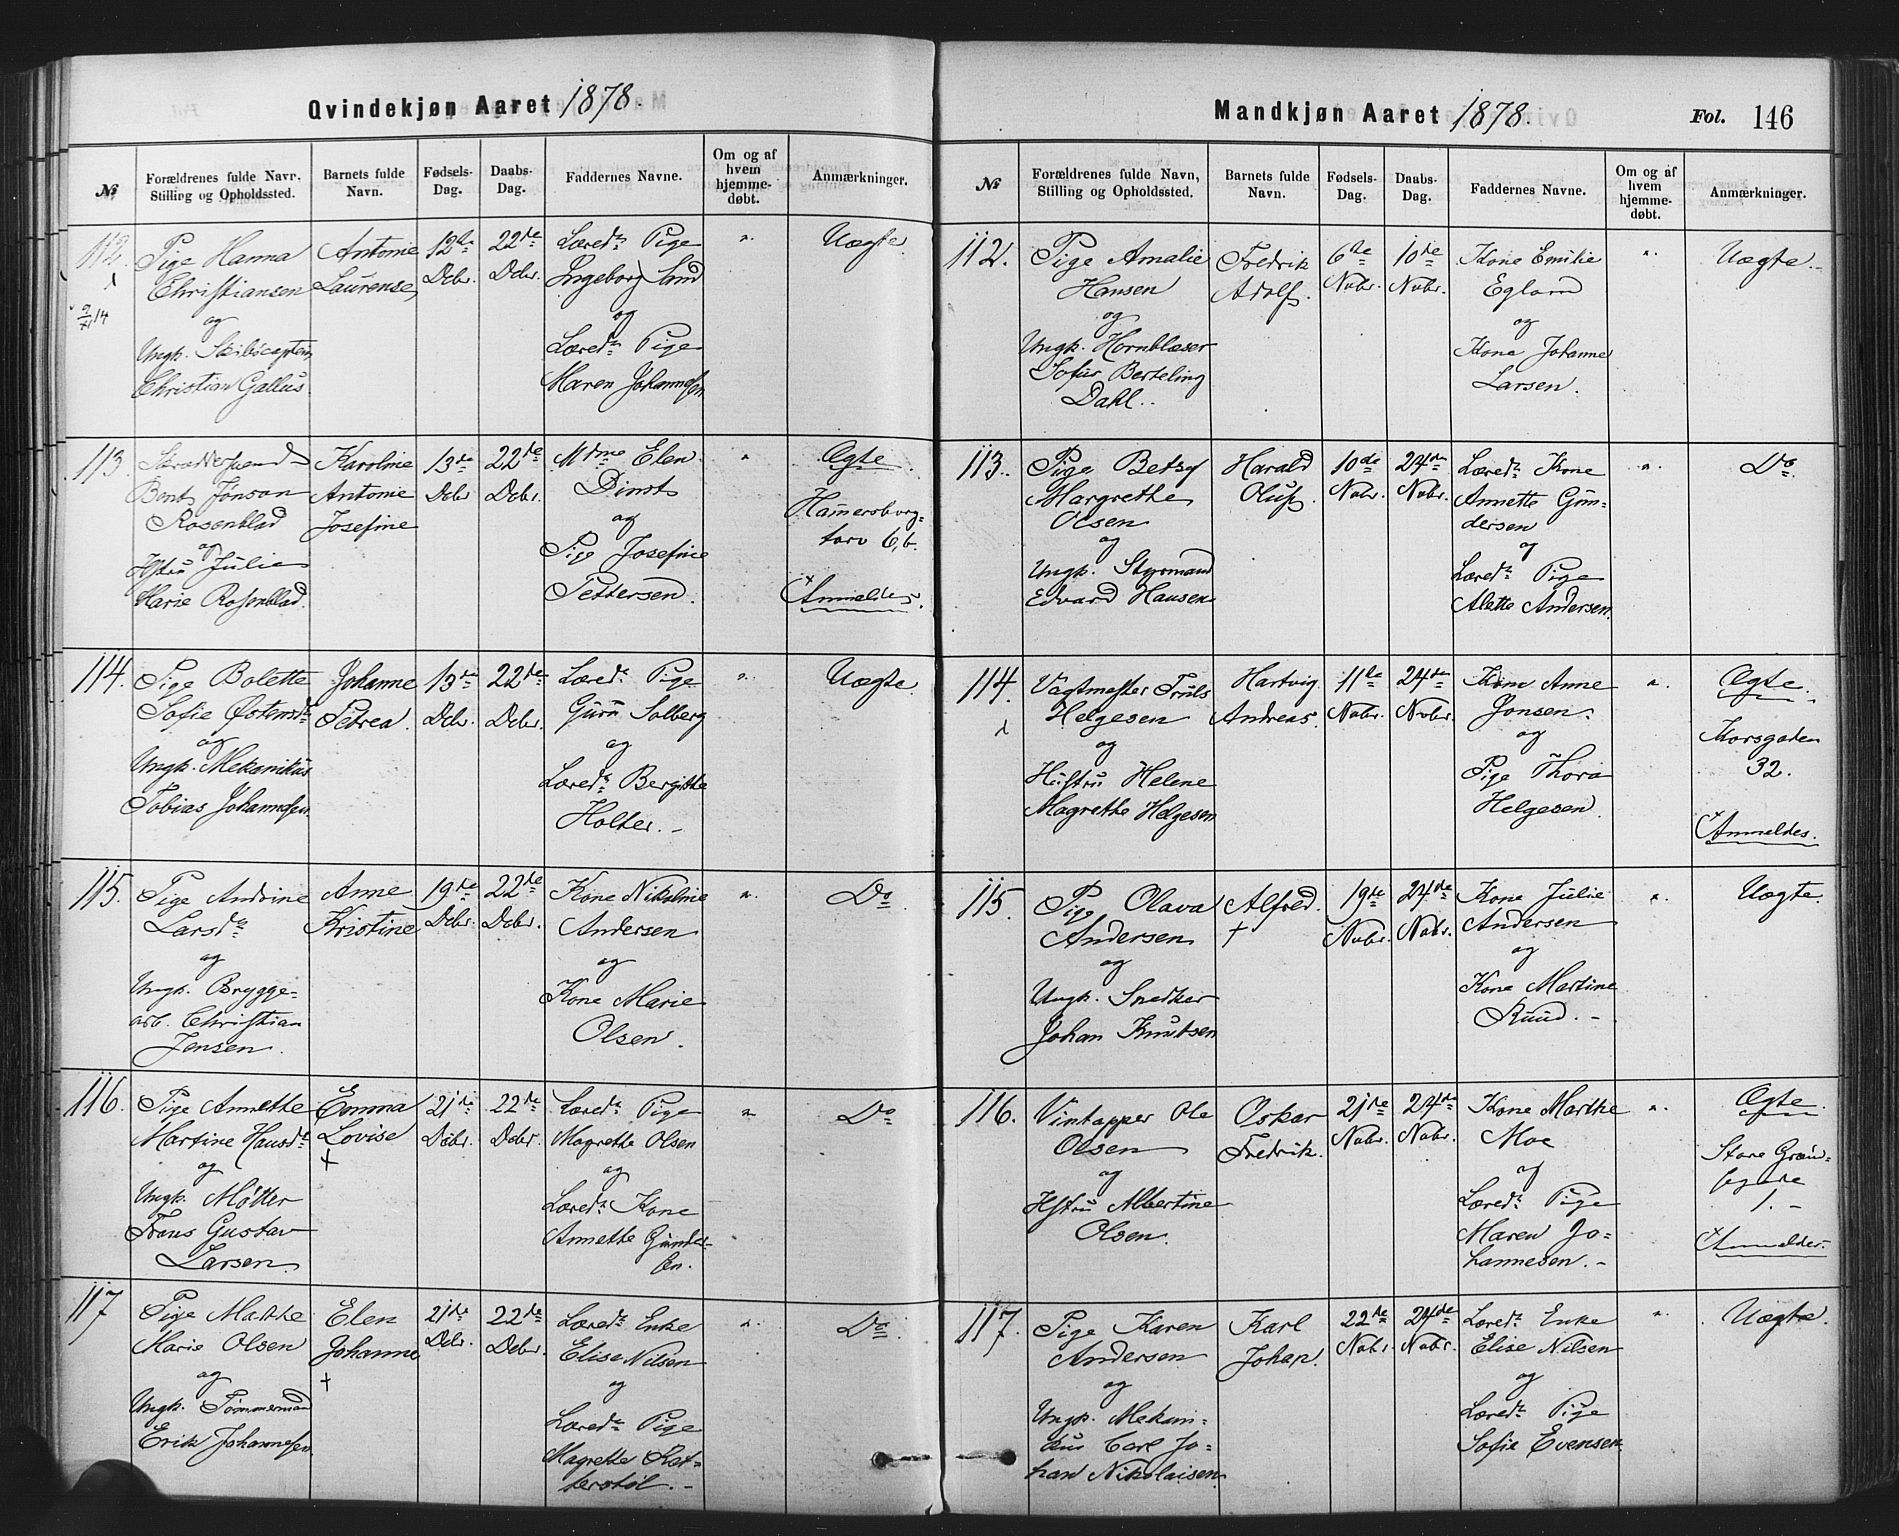 Qvindekjøn Aaret 1878.
№
Forældrenes fulde Navn,
Stilling og Opholdssted.
Barnets fulde
Navn.
Fødsels-
Dag.
Daabs-
Dag.
Faddernes Navne.
Om og af
hvem
hjemme-
døbt.
Anmærkninger.
112.
Pige Hanna
Christiansen
og
Ungk. Skibscaptein
Christian Gallus.
Antonie
Laurense
12te
Dcbr.
22de
Dcbr.
Læred. Pige
Ingeborg Lund
og
Læred. Pige
Maren Johannesen
"
Uægte.
113.
Skræddersvend
Bent Jonson
Rosenblad
og
Hstru Julie
Marie Rosenblad.
Karoline
Antonie
Josefine
13de
Dcbr
22de
Dcbr.
Mdme Elen
Dinst
og
Pige Josefine
Pettersen.
"
Ægte.
Hamersborg-
torv 6,b.
+Anmeldes.
114.
Pige Bolette
Sofie Østensd.
og
Ungk. Mekanikus
Tobias Johannesen
Johanne
Petrea.
13de
Dcbr.
22de
Dcbr.
Læred. Pige
Guru Solberg
og
Læred. Bergitte
Holter. -
"
Uægte.
115.
Pige Andrine
Larsd.
og
Ungk. Brygge-
arb. Christian
Jensen.
Anne
Kristine
19de
Dcbr.
22de
Dcbr.
Kone Nikoline
Andersen
og
Kone Marie
Olsen.
"
Do.
116.
Pige Annethe
Martine Hansd.
og
Ungk. Møller
Frans Gustav
Larsen.
Emma
Lovise
+
21de
Dcbr.
22de
Dcbr.
Læred. Pige
Magrethe Olsen
og
Læred. Kone
Annette Gunder-
sen.
"
Do
117
Pige Mathe
Marie Olsen
og
Ungk. Tømmermand
Erik Johannesen.
Elen
Johanne
+
21de
Dcbr.
22de
Dcbr.
Læred. Enke
Elise Nilsen
og
Læred. Pige
Magrethe Sæt-
terstøl. -
"
Do.
Mandkjøn Aaret 1878.
Fol. 146
№
Forældrenes fulde Navn,
Stilling og Opholdssted.
Barnets fulde
Navn.
Fødsels-
Dag.
Daabs-
Dag.
Faddernes Navne.
Om og af
hvem
hjemme-
døbt.
Anmærkninger.
112.
Pige Amalie
Hansen
og
Ungk. Hornblæser
Sofus Berteling
Dahl.
Fredrik
Adolf.
6te
Nvbr.
10de
Nvbr.
Kone Emilie
Eglund
og
Kone Johanne
Larsen.
"
Uægte.
113.
Pige Betsy
Margrethe
Olsen
og
Ungk. Styrmand
Edvard Hansen
Harald
Oluf.
10de
Nvbr.
24de
Nvbr.
Læred. Kone
Annette Gun-
dersen
og
Læred. Pige
Alette Andersen.
"
Do
114.
Vagtmester Truls
Helgesen
og
Hustru Helene
Magrethe Helgesen
Hartvig
Andreas.
11te
Nvbr.
24de
Nvbr.
Kone Anne
Jonsen.
og
Pige Thora
Helgesen.
"
Ægte.
Korsgaden
32.
+Anmeldes.
115.
Pige Olava
Andersen
og
Ungk. Snedker
Johan Knutsen
Alfred.
+
19de
Nvbr.
24de
Nvbr.
Kone Julie
Andersen
og
Kone Martine
Ruud. -
"
Uægte.
116.
Vintapper Ole
Olsen
og
Hstru Albertine
Olsen.
Oskar
Fredrik.
21de
Nvbr.
24de
Nvbr.
Kone Marthe
Moe
og
Læred. Pige
Maren Jo-
hannesen. -
"
Ægte.
Store Græn-
segade
1. -
+Anmeldes.
117.
Pige Karen
Andersen
og
Ungk. Mekani-
kus Carl Jo-
han Nikolaisen
Karl
Johan.
22de
Nvbr.
24de
Nvbr.
Læred. Enke
Elise Nilsen
og
Læred. Pige
Sofie Evensen.
"
Uægte.